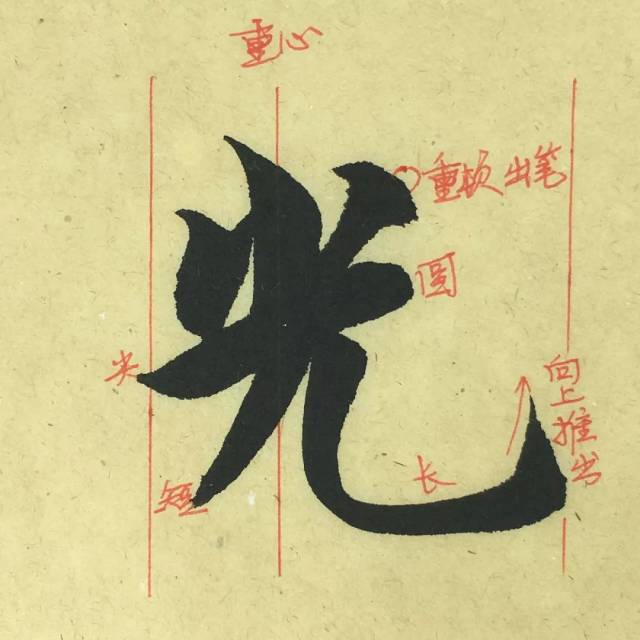 重心
光
重按出笔
圆
尖
向上推出
长
短